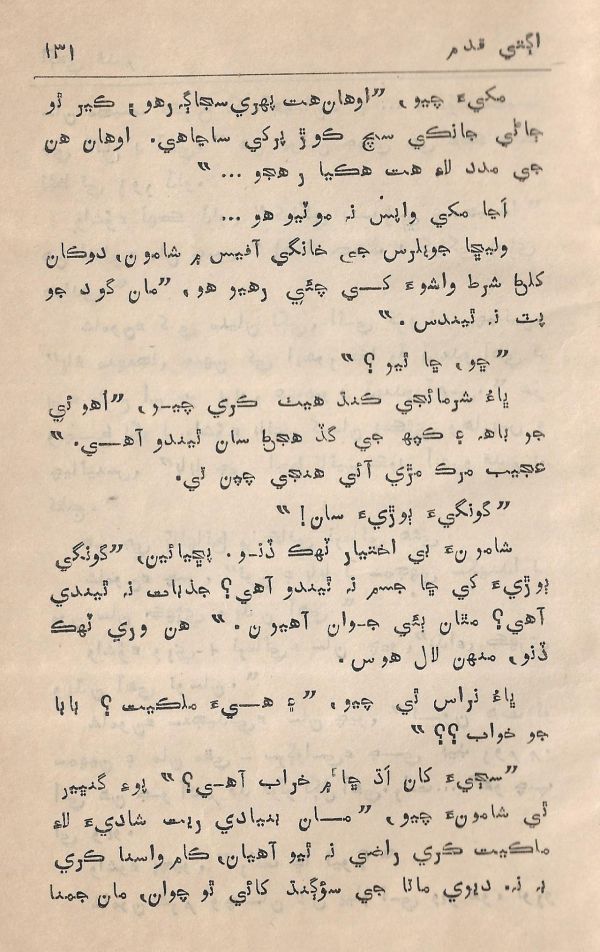 اڳتي قدم ۱۳۱
مکيءَ چيو، ”اوهان هت پهري سجاڳ رهو ۽ ڪير ٿو
ڄاڻي ڄانڪي سچ ڪوڙ پرکي ساڃاهي. اوهان هن
جي مدد لاءِ هت هڪيا رهجو ... “
اڃا مکي واپس نہ موٽيو هو ...
وليڇا جويلرس جي خانگي آفيس ۾ شامون، دوڪان
کلڻ شرط واشوءَ کي چئي رهيو هو، ”مان گود جو
پٽ نہ ٿيندس. “
”ڇو، ڇا ٿيو ؟ “
ڀاءُ شرمائجي ڪنڌ هيٺ ڪري چيو، ”اُهو ئي
جو باهہ ۽ ڪپهہ جي گڏ هجڻ سان ٿيندو آهي. “
عجيب مرڪ مڙي آئي هنجي چپن تي.
”گونگيءَ ٻوڙيءَ سان! “
شامونءَ بي اختيار ٽهڪ ڏنو. پڇيائين، ”گونگي
ٻوڙيءَ کي ڇا جسم نہ ٿيندو آهي؟ جذبات نہ ٿيندي
آهي؟ مٿان ٻئي جوان آهيون. “ هن وري ٽهڪ
ڏنو، منهن لال هوس.
ڀاءُ نراس ٿي چيو، ”۽ هيءَ ملڪيت ؟ بابا
جو خواب ؟؟ “
”سڄيءَ کان اڌ ڇا ۾ خراب آهي؟ “ پوءِ گنڀير
ٿي شامونءَ چيو، ”مان بنيادي ريت شاديءَ لاءِ
ملڪيت ڪري راضي نہ ٿيو آهيان، ڪام واسنا ڪري
بہ نہ. ديوي ماتا جي سؤگنڌ کائي ٿو چوان، مان جمنا